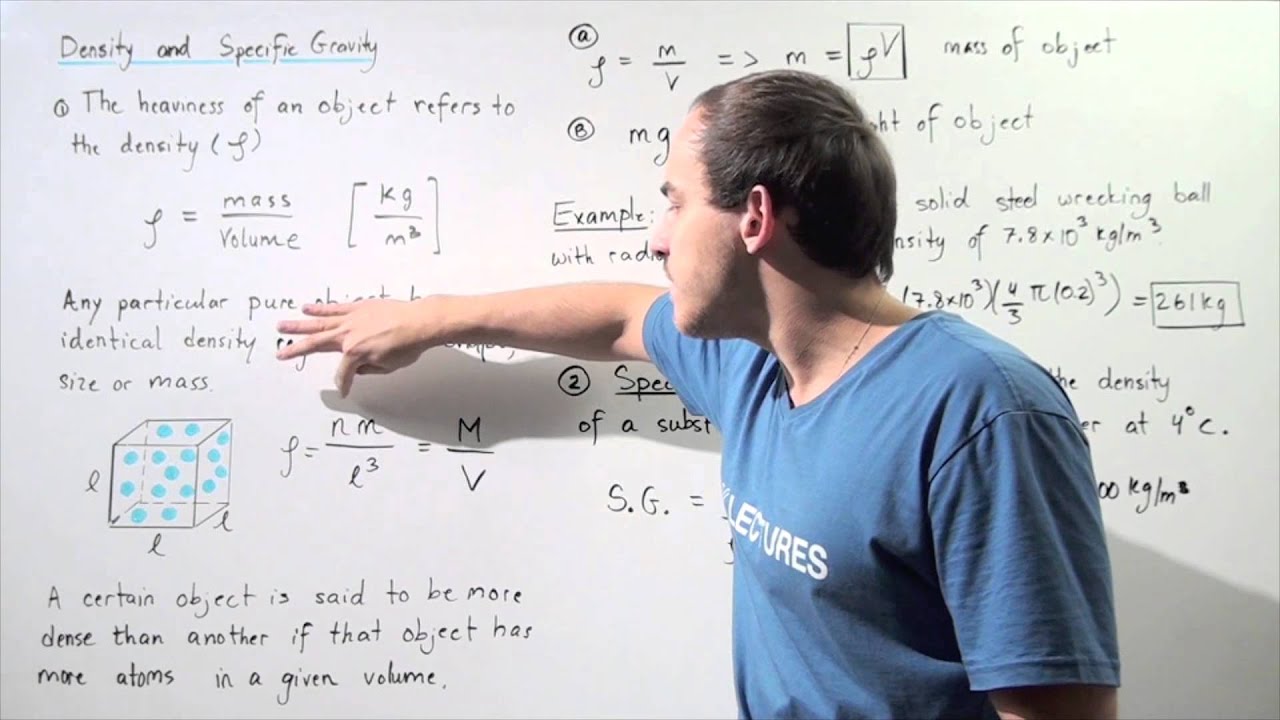 Density and Specific Gravity
① The heaviness of an object refers to
the density (ρ)
ρ = mass / Volume [kg / m³]
Any particular pure object
identical density
size or mass.
l
l
l
ρ = n m / l³ = M / V
A certain object is said to be more
dense than another if that object has
more atoms in a given volume.
ⓐ ρ = m / V => m = ρV mass of object
Ⓑ mg of object
Example: solid steel wrecking ball
with of 7.8×10³ kg/m³.
(7.8×10³)(4/3 π(0.2)³) = 261kg
② the density
of a at 4°C.
S.G. = kg/m³
LECTURES